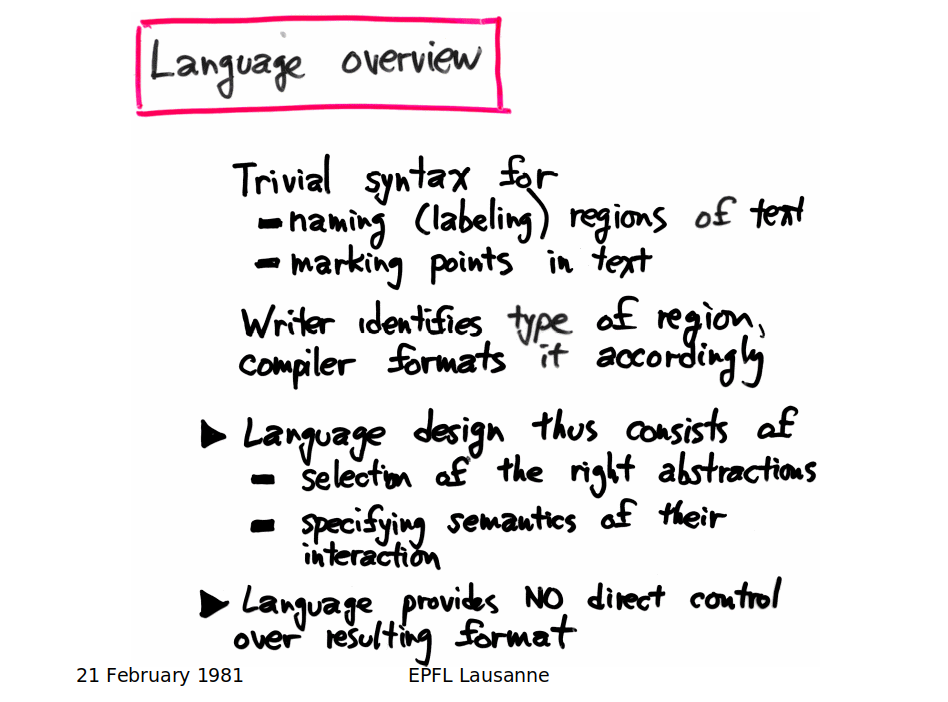 Language overview
Trivial syntax for
- naming (labeling) regions of text
- marking points in text
Writer identifies type of region,
compiler formats it accordingly
▶ Language design thus consists of
- selection of the right abstractions
- specifying semantics of their
interaction
▶ Language provides NO direct control
over resulting format
21 February 1981
EPFL Lausanne